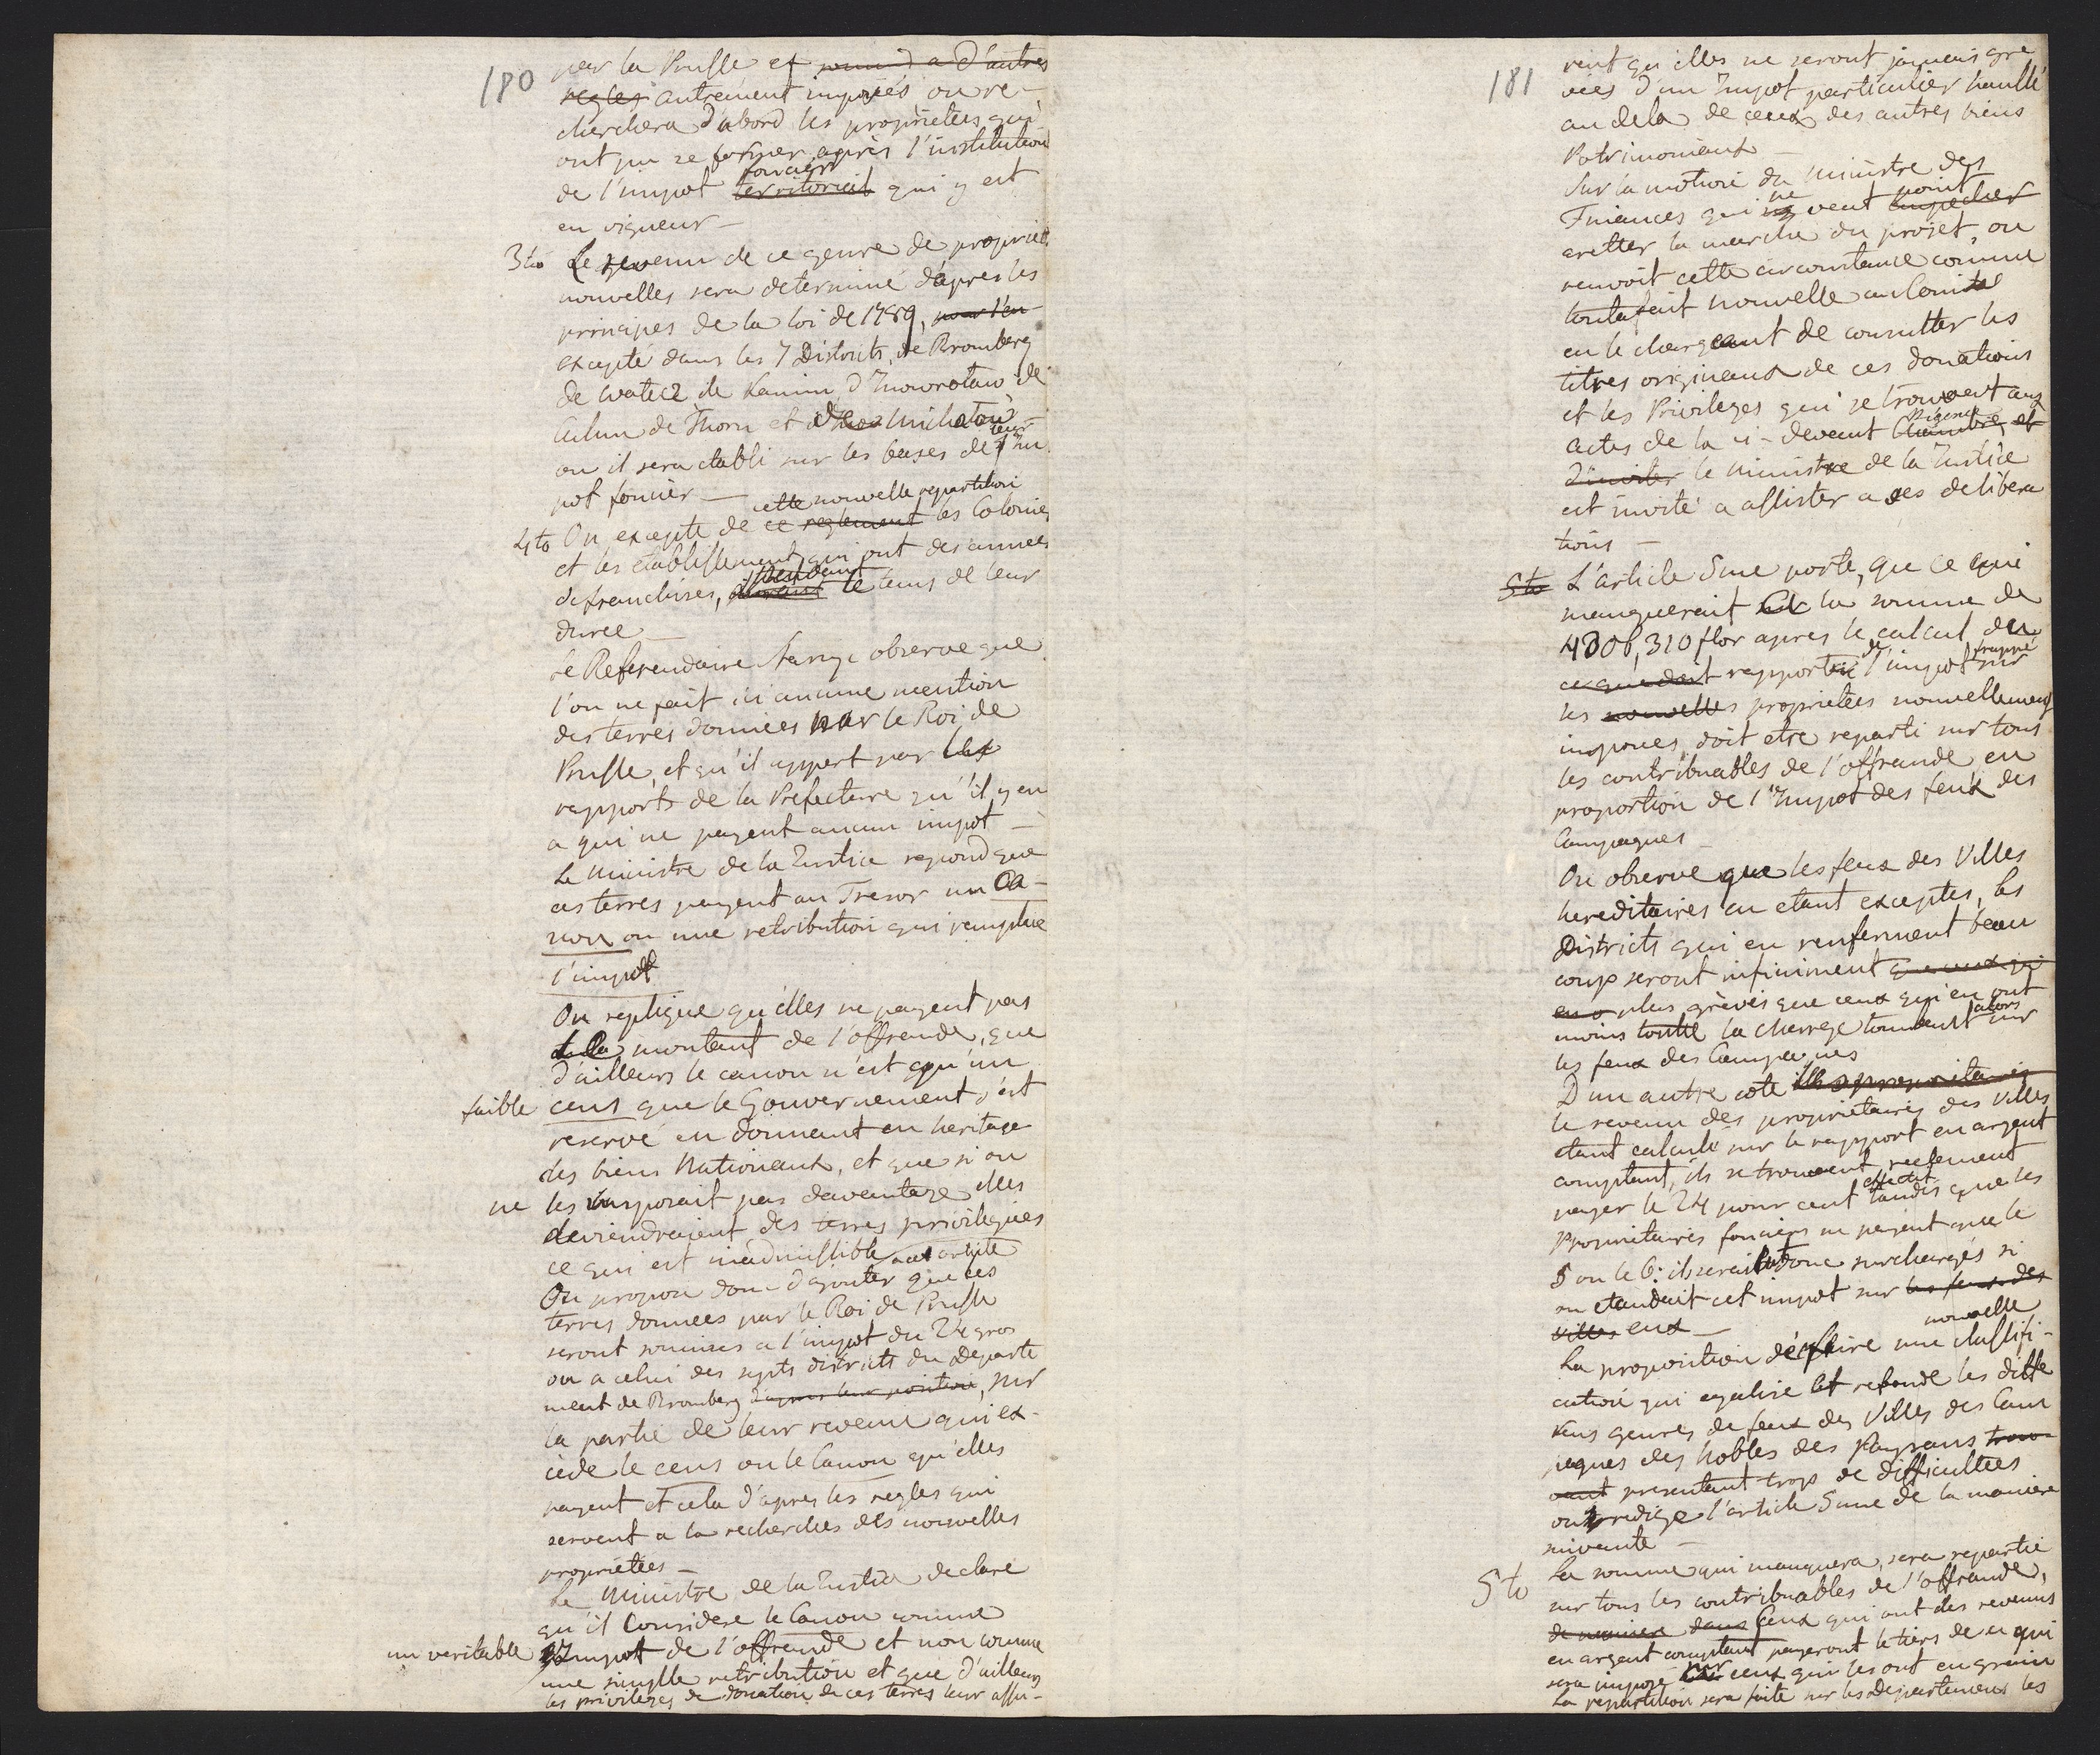 180
par la Prusse et soumis a d'autres
regles autrement imposés on re-
cherchera d'abord les proprietées qui
ont pu se former après l'institution
foncier
de l'impot territorial qui y est
en vigueur —
3tio Le revenu de ce genre de propriét.
nouvelles sera determiné d'apres les
principes de la loi de 1789, pour l'en
excepté dans les 7 Districts, de Bromberg
de Watecz de Kamin d'Inowrotaw de
Culm de Thorn et de Michetow
ou il sera etabli sur les bases de leur Im
pot foncier —
cette nouvelle repartition
4to On excepte de ce reglement les Colonies
et les etablissements qui ont des années
pendant
de franchises, durant le tems de leur
duree —
Le Referendaire observe que
l'on ne fait ici aucune mention
des terres données par le Roi de
Prusse, et qu'il appert par les
rapports de la Prefecture qu'il y en
a qui ne payent aucun impot —
Le Ministre de la Justice repond que
ces terres payent au Tresor un Ca-
non ou une retribution qui remplace
l'impot
On replique qu'elles ne payent pas
de la montant de l'offrande, que
d'ailleurs le canon n'est qu'un
faible cens que le Gouvernement s'est
reservé en donnant en heritage
des biens Nationaux, et que si on
ne les imposait pas davantage elles
deviendraient des terres privilegiées
ce qui est inadmissible
a cet article
On propose donc d'ajouter que ces
terres donnees par le Roi de Prusse
seront soumises a l'impot du 24 gros
ou a celui des septs districts du Departe
ment de Bromberg d'apres leur position, sur
la partie de leur revenu qui ex-
cède le cens ou le Canon qu'elles
payent et cela d'apres les regles qui
servent a la recherches des nouvelles
proprietées —
Le Ministre de la Justice declare
qu'il considere le Canon comme
un veritable Impot de l'offrande et non comme
une simple retribution et que d'ailleurs
les privileges de donation de ces terres leur assu-
181
rent qu'elles ne seront jamais gre
vées d'un Impot particulier haussé
au dela de ceux des autres biens
Patrimoniaux —
Sur la motion du Ministre des
ne point
Finances qui ne veut empecher
aretter la marche du projet, on
renvoit cette circonstance comme
toutafait nouvelle au Comité
en le chargeant de consulter les
titres originaux de ces donations
et les Privileges qui se trouvent aux
Regence
actes de la ci-devant Chambre, et
d'inviter le Ministre de la Justice
est invité a assister a ses delibera
tions —
5to L'article 5me porte, que ce qui
manquerait a la somme de
4306,310 flor apres le calcul du
de frappé
ce que doit rapporter l'impot sur
les nouvelles proprietées nouvellement
imposees, doit etre reparti sur tous
les contribuables de l'offrande en
proportion de l'Impot des feux des
Campagnes —
On observe que les feux des Villes
hereditaires en etant exceptes, les
Districts qui en renferment beau
coup seront infiniment que ceux qui
en o plus grèvés que ceux qui en ont
alors
moins toute la charge tombant sur
les feux des Campagnes
D'un autre coté les proprietaires
le revenu des proprietaires des Villes
etant calculé sur le rapport en argent
comptant, ils se trouvent reellement
effectif
payer le 24 pour cent tandis que les
Proprietaires fonciers ne payent que le
5 ou le 6: ils seraient donc surchargés si
on etendait cet impot sur les feux des
villes eux —
nouvelle
La proposition de faire une classifi-
cation qui egalise et refonde les diffe
rens genres de feux des Villes des Cam
pagnes des Nobles des Paysans trou-
vant presentant trop de difficultees
on redige l'article 5me de la maniere
suivante —
5to La somme qui manquera, sera repartie
sur tous les contribuables de l'offrande,
de maniere dans Ceux qui ont des revenus
en argent comptant payeront le tiers de ce qui
sur
sera imposé sur ceux qui les ont en grain
La repartition sera faite sur les Departemens les